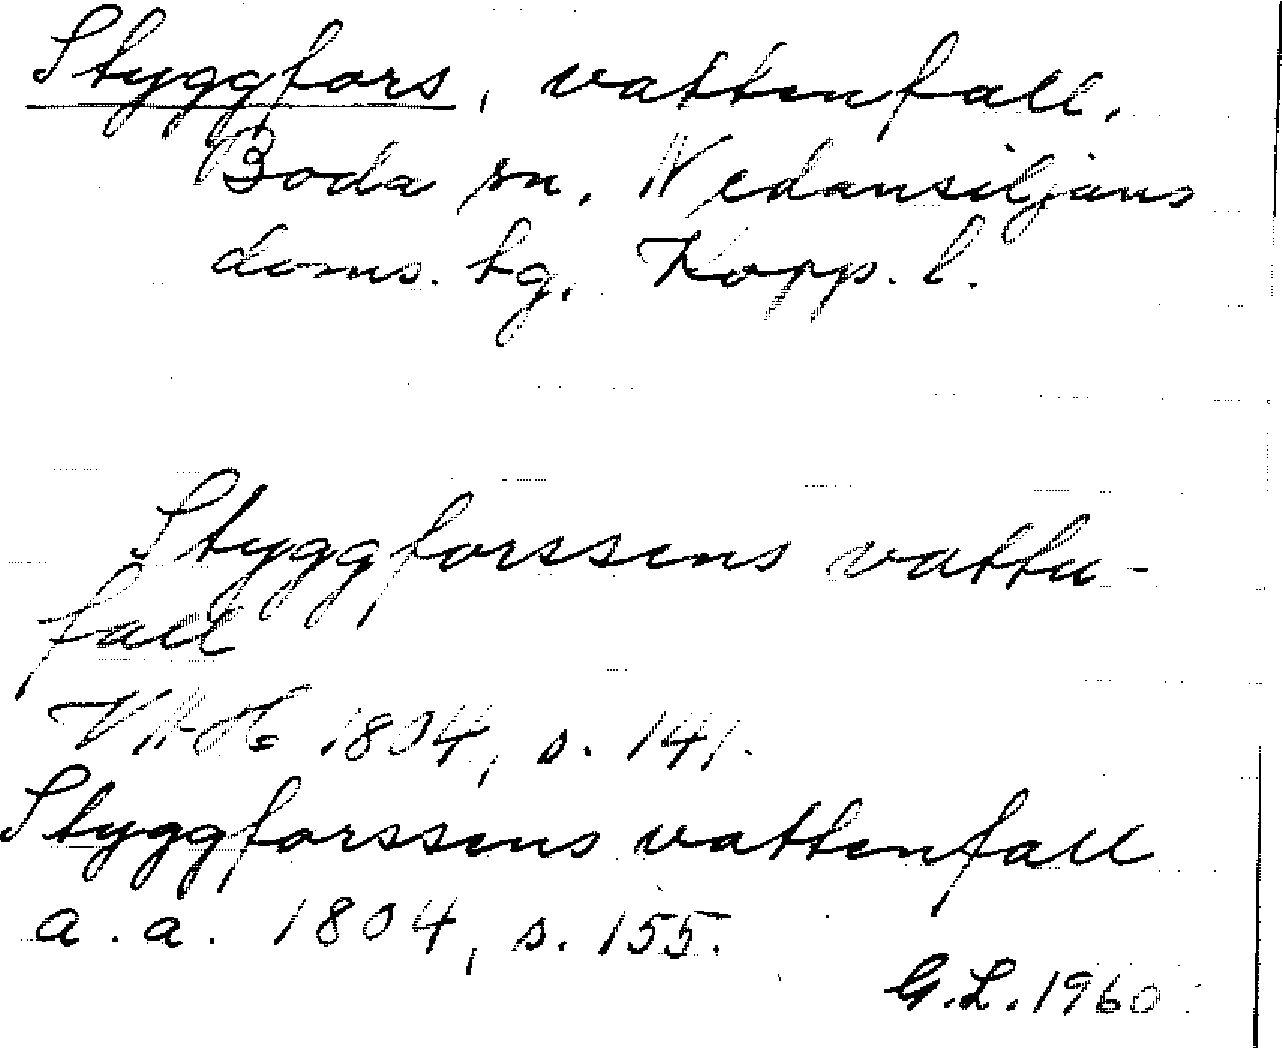 Styggfors, vattenfall.
Boda sn. Nedansiljans
doms. tg. Kopp. l.
Styggforssens vattu-
fall
VAH 1804, s. 141.
Styggforssens vattenfall
a. a. 1804, s. 155.
G.L. 1960